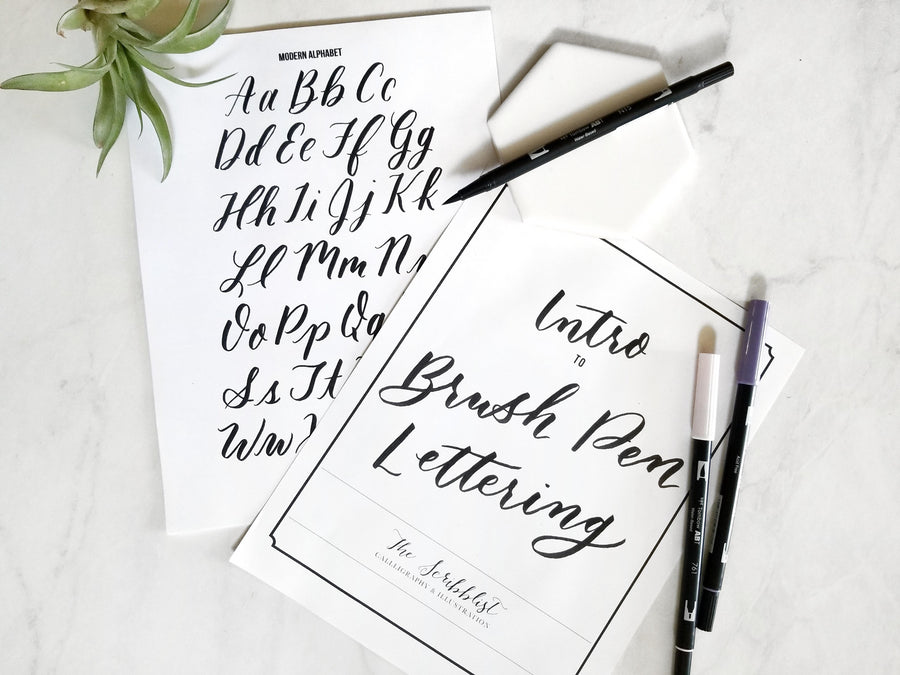 MODERN ALPHABET
Aa Bb Cc
Dd Ee Ff Gg
Hh Ii Jj Kk
Ll Mm Nn
Oo Pp Qq
Ss Tt
Ww
Intro
TO
Brush Pen
Lettering
The Scribblist
CALLIGRAPHY & ILLUSTRATION
N15
Tombow ABT
761